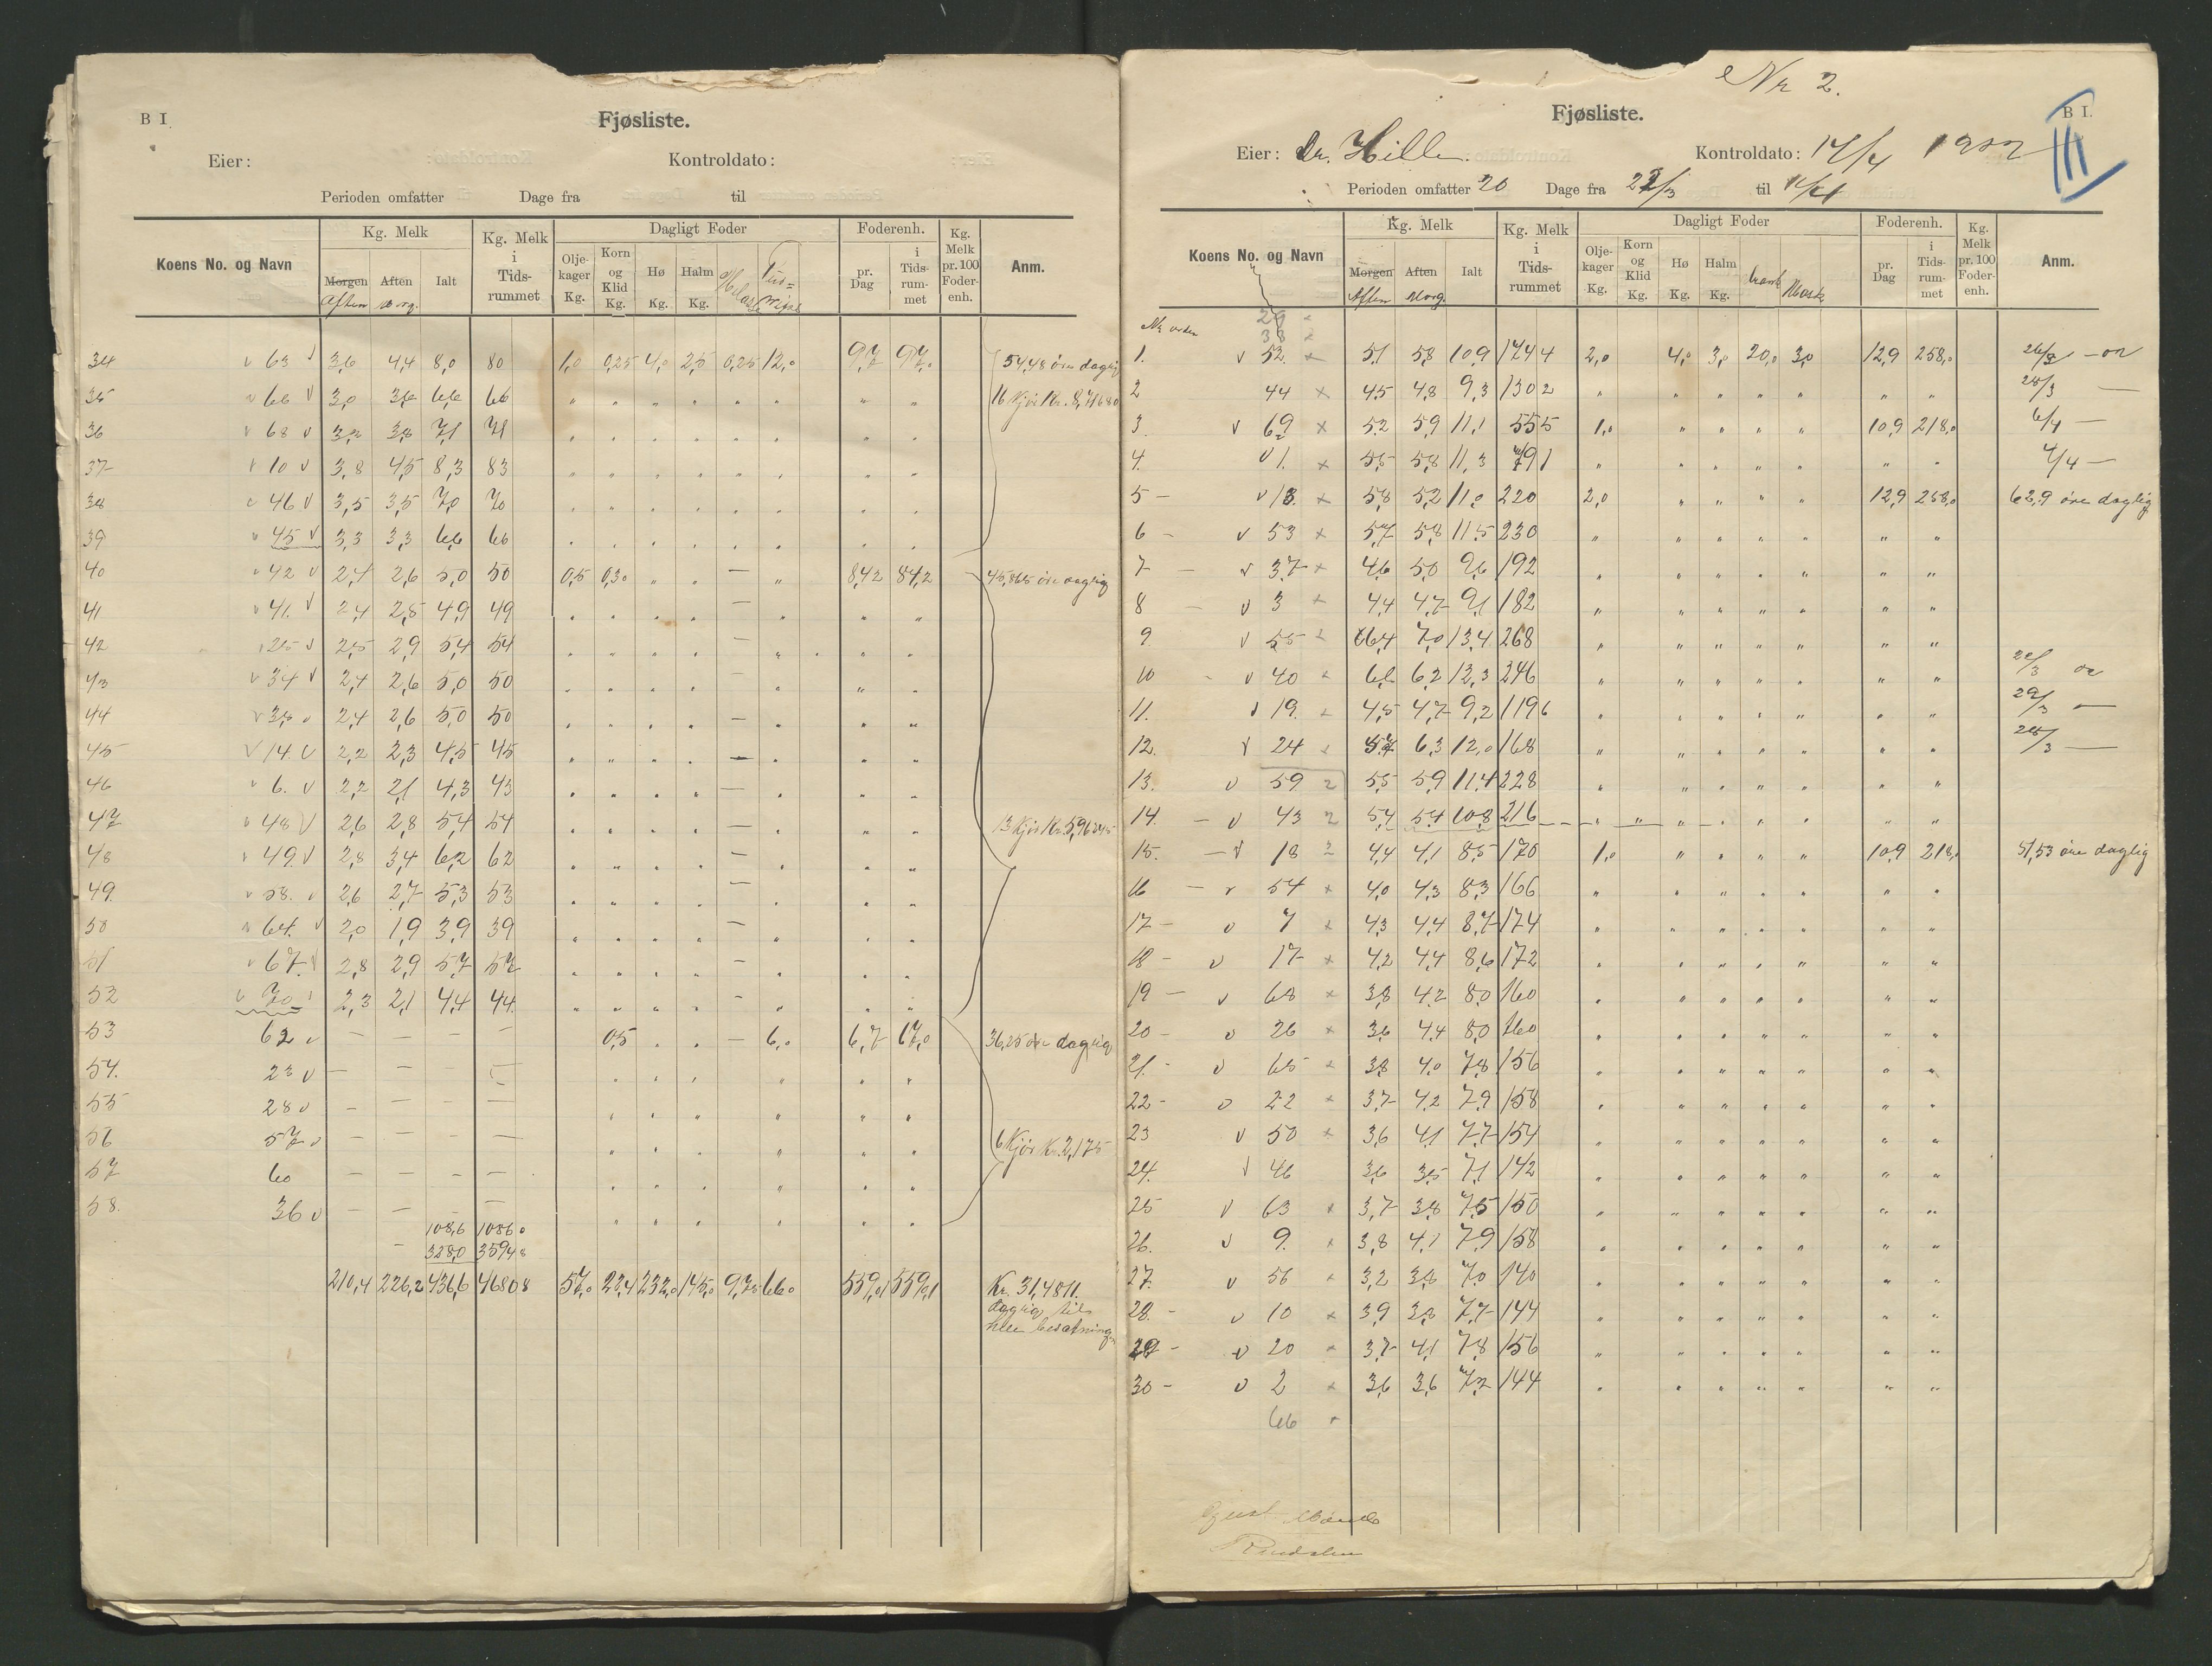 B I.
Fjøsliste.
Eier:
Kontroldato:
Perioden omfatter Dage fra til
Koens No. og Navn
Kg. Melk
Morgen Aften Ialt
Aften Morg.
Kg. Melk i Tidsrummet
Dagligt Foder
Oljekager Kg.
Korn og Klid Kg.
Hø Kg.
Halm Kg.
Foderenh.
pr. Dag
i Tidsrummet
Kg. Melk pr. 100 Foderenh.
Anm.
34 v 63 v 3,6 4,4 8,0 80 1,0 0,25 4,0 2,5 0,25 12,0 9,7 97,0 54,48 øre daglig
35 v 66 v 3,0 3,6 6,6 66 " " " " " " " " 16 Kjør Kr. 8,71680
36 v 68 v 3,3 3,8 7,1 71 " " " " " " " "
37 v 10 v 3,8 4,5 8,3 83 " " " " " " " "
38 v 46 v 3,5 3,5 7,0 70 " " " " " " " "
39 v 45 v 3,3 3,3 6,6 66 " " " " " " " "
40 v 42 v 2,4 2,6 5,0 50 0,5 0,30 " " — " 8,42 84,2 45,865 øre daglig
41 v 41. v 2,4 2,5 4,9 49 " " " " — " " "
42 v 25 v 2,5 2,9 5,4 54 " " " " — " " "
43 v 34 v 2,4 2,6 5,0 50 " " " " — " " "
44 v 35 v 2,4 2,6 5,0 50 " " " " — " " "
45 v 14 v 2,2 2,3 4,5 45 " " " " — " " "
46 v 6. v 2,2 2,1 4,3 43 " " " " — " " "
47 v 48 v 2,6 2,8 5,4 54 " " " " — " " " 13 Kjør Kr. 5,96245
48 v 49 v 2,8 3,4 6,2 62 " " " " — " " "
49. v 58. v 2,6 2,7 5,3 53 " " " " — " " "
50 v 64. v 2,0 1,9 3,9 39 " " " " — " " "
51 v 67. v 2,8 2,9 5,7 57 " " " " — " " "
52 v 70 v 2,3 2,1 4,4 44. " " " " — " " "
53 62 v — — — — 0,5 " " — 6,0 6,7 67,0 36,25 øre daglig
54. 23 v — — — " " " " " "
55 28 v — — — — " " " " " "
56 57 v — — — — " " " " " " 6 Kjør Kr. 2,175
57 60 — — — — " " " " " "
58. 36 v — — — — " " " " " "
108,6 1086 0
— 328,0 3594 8
210,4 226,2 436,6 4680 8 57,0 23,4 232,0 145,0 9,75 66 0 559,01 5590,1 Kr. 31,4811.
daglig til
hele besætningen
Nr 2.
Fjøsliste.
B I.
III
Eier: Dr. Hille.
Kontroldato: 14/4 1902
Perioden omfatter 20 Dage fra 22/3 til 11/4
Koens No. og Navn
Kg. Melk
Morgen Aften Ialt
Aften Morg.
Kg. Melk i Tidsrummet
Dagligt Foder
Oljekager Kg.
Korn og Klid Kg.
Hø Kg.
Halm Kg.
Mask
Foderenh.
pr. Dag
i Tidsrummet
Kg. Melk pr. 100 Foderenh.
Anm.
29
38
1. v 52. x 5,1 5,8 10,9 174 4 2,0 4,0 3,0 20,0 3,0 12,9 258,0
2 44 x 4,5 4,8 9,3 130 2 " " " " " " " 28/3 —
3. v 69 x 5,2 5,9 11,1 55 5 1,0 " " " " 10,9 218,0 6/4 —
4. v 1. x 5,5 5,8 11,3 79 1 " " " " " " " 4/4 —
5 — v 13. x 5,8 5,2 11,0 220 2,0 " " " " 12,9 258,0 62,9 øre daglig
6 — v 53 x 5,7 5,8 11,5 230 " " " " " " "
7 — v 37 x 4,6 5,0 9,6 192 " " " " " " "
8 — v 3 x 4,4 4,7 9,1 182 " " " " " " "
9. v 55 x 6,4 7,0 13,4 268 " " " " " " "
10 - v 40 x 6,1 6,2 12,3 246 " " " " " " "
11. v 19. x 4,5 4,7 9,2 119 6 " " " " " " " 29/3 —
12. v 24 x 5,7 6,3 12,0 168 " " " " " " " 28/3 —
13. v 59 5,5 5,9 11,4 228 " " " " " " "
14. — v 43 5,4 5,4 10,8 216 " " " " " " " "
15. — v 18 4,4 4,1 8,5 170 1,0 " " " " 10,9 218,0 51,53 øre daglig
16 — v 54 x 4,0 4,3 8,3 166 " " " " " " "
17 — v 7 x 4,3 4,4 8,7 174 " " " " " " "
18 - v 17 x 4,2 4,4 8,6 172 " " " " " " "
19 — v 68 x 3,8 4,2 8,0 160 " " " " " " "
20 - v 26 x 3,6 4,4 8,0 160 " " " " " " "
21. - v 65 x 3,8 4,0 7,8 156 " " " " " " "
22 - v 22 x 3,7 4,2 7,9 158 " " " " " " "
23 v 50 x 3,6 4,1 7,7 154 " " " " " " "
24. v 46 3,6 3,5 7,1 142 " " " " " " "
25 v 63 x 3,7 3,8 7,5 150 " " " " " " "
26. v 9. x 3,8 4,1 7,9 158 " " " " " " "
27. v 56 x 3,2 3,8 7,0 140 " " " " " " "
28. - v 10 x 3,9 3,8 7,7 144 " " " " " " "
29 - v 20 x 3,7 4,1 7,8 156 " " " " " " "
30 - v 2 x 3,6 3,6 7,2 144 " " " " " " "
66 x